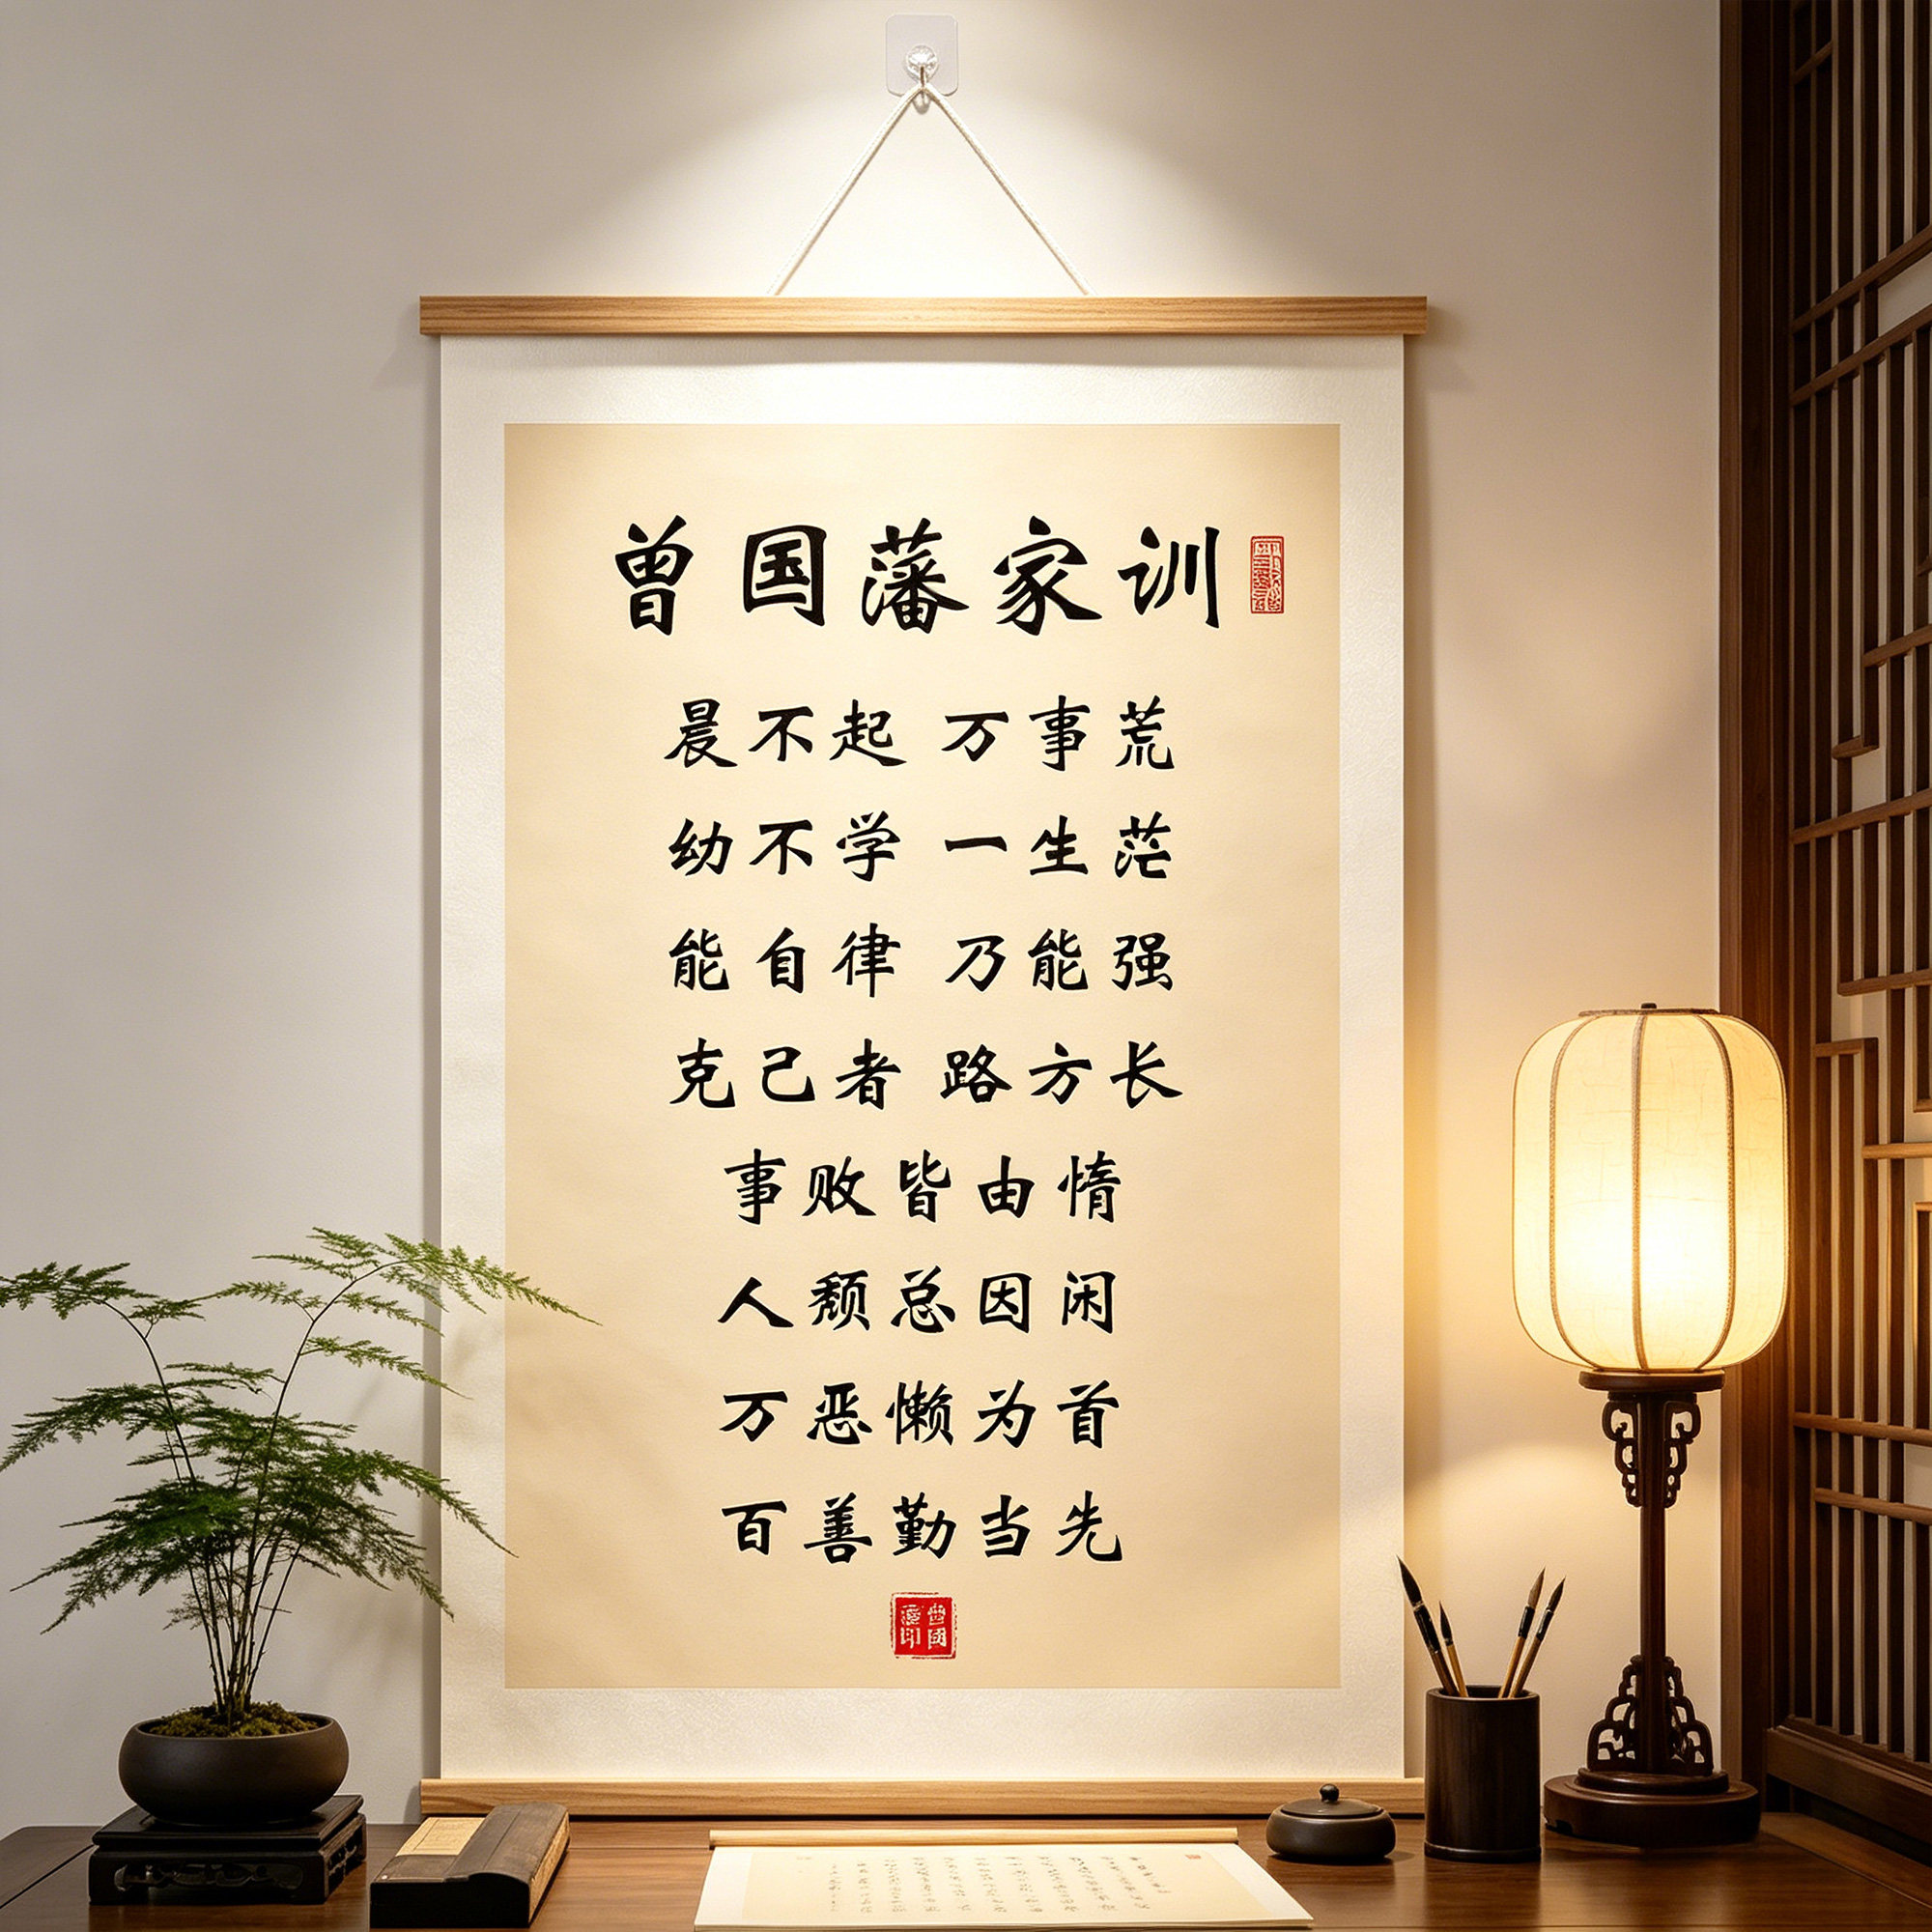 曾国藩家训
晨不起 万事荒
幼不学 一生茫
能自律 乃能强
克己者 路方长
事败皆由惰
人颓总因闲
万恶懒为首
百善勤当先